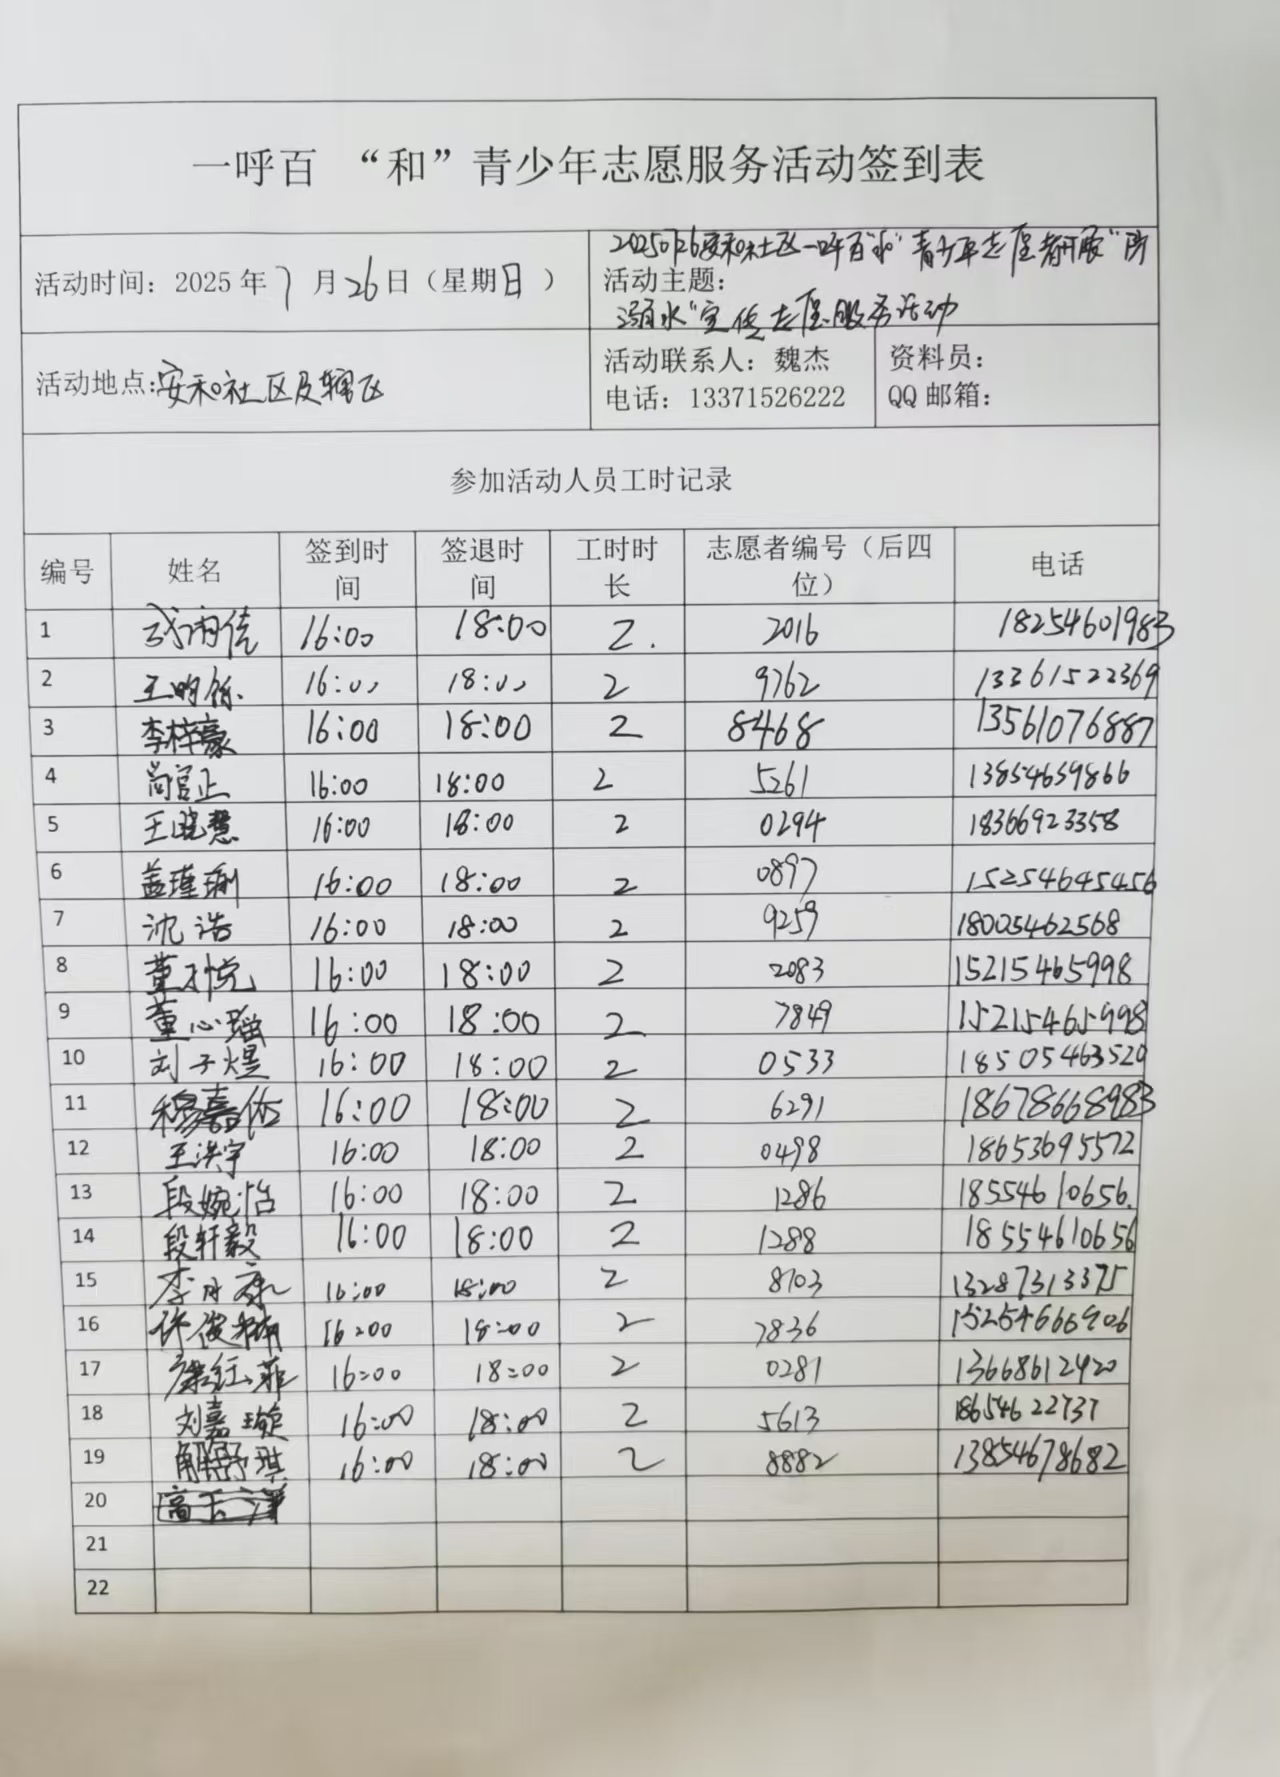 一呼百 “和”青少年志愿服务活动签到表
活动时间：2025年7月26日（星期日）
20250726安和社区一呼百“和”青少年志愿者开展“防
活动主题：
溺水”宣传志愿服务活动
活动地点:安和社区及辖区
活动联系人：魏杰
电话：13371526222
资料员：
QQ邮箱：
参加活动人员工时记录
编号 姓名 签到时间 签退时间 工时时长 志愿者编号（后四位） 电话
1 16:00 18:00 2. 2016 18254601983
2 王昀 16:00 18:00 2 9762 13361522369
3 李梓豪 16:00 18:00 2 8468 13561076887
4 尚官正 16:00 18:00 2 5261 13854659866
5 王晓慧 16:00 18:00 2 0294 18366923358
6 盖瑾琍 16:00 18:00 2 0897 15254645456
7 沈浩 16:00 18:00 2 9259 18005462568
8 董 悦 16:00 18:00 2 2083 15215465998
9 董心瑶 16:00 18:00 2 7849 15215465998
10 刘子煜 16:00 18:00 2 0533 18505463520
11 穆嘉依 16:00 18:00 2 6291 18678668983
12 王洪宇 16:00 18:00 2 0498 18653695572
13 段婉怡 16:00 18:00 2 1286 18554610656.
14 段轩毅 16:00 18:00 2 1288 18554610656
15 李月康 16:00 18:00 2 8103 13287313375
16 许俊楠 16:00 18:00 2 7836 15254666906
17 16:00 18:00 2 0281 13668612420
18 刘嘉璇 16:00 18:00 2 5613 18654622737
19 解舒琪 16:00 18:00 2 8882 13854678682
20
21
22